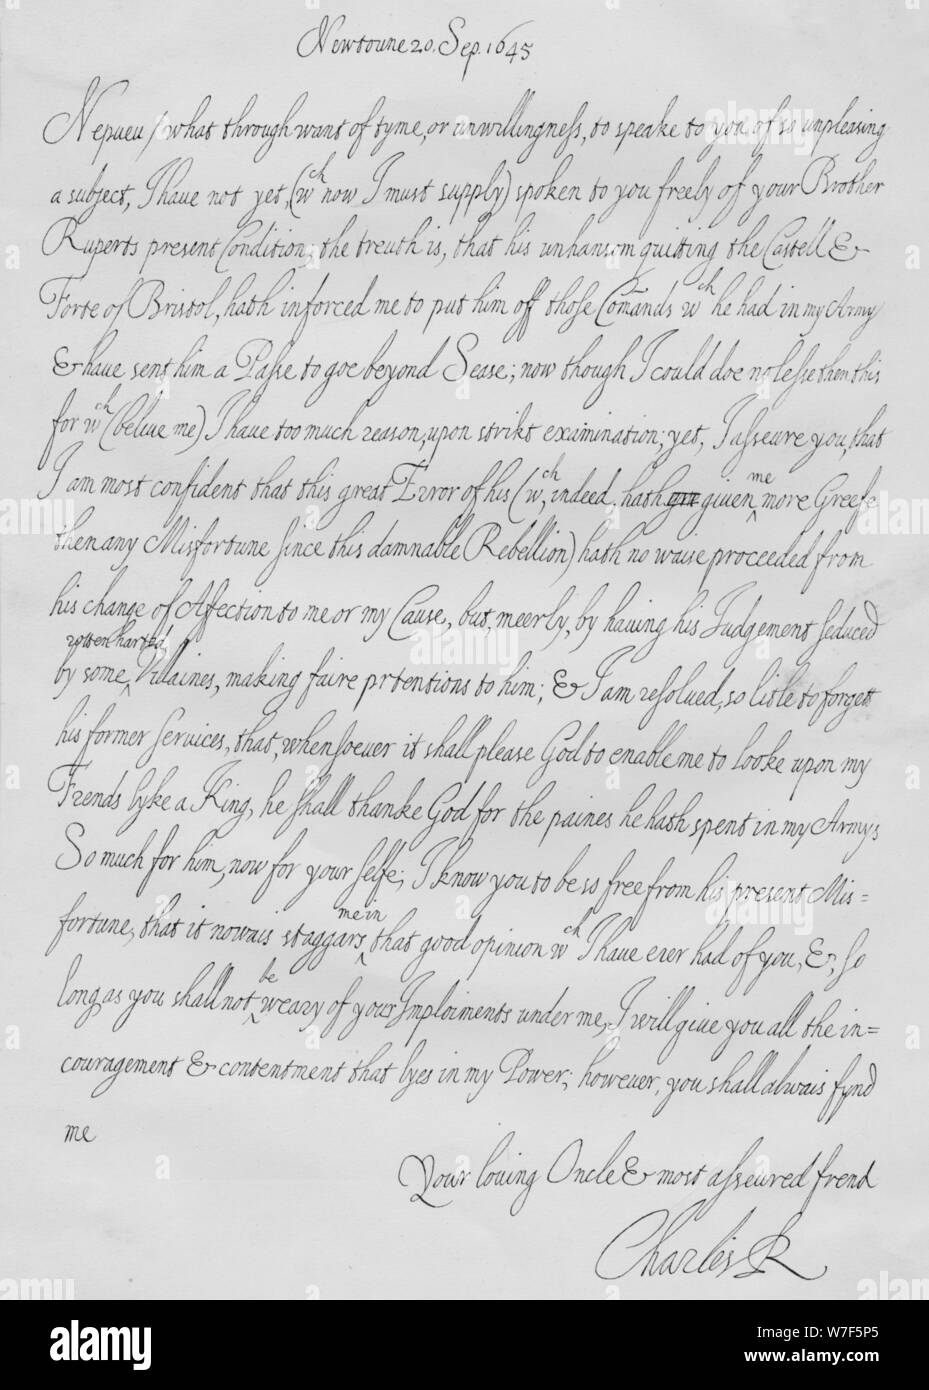 Newtoune 20. Sep. 1645
Nepueu / what through want of tyme, or unwillingness, to speake to you of so unpleasing
a subject, I haue not yet, (wch now I must supply) spoken to you freely of your Brother
Ruperts present Condition; the treuth is, that his unhansom quitting the Castell &
Forte of Bristol, hath inforced me to put him off those Comands wch he had in my Army
& haue sent him a Passe to goe beyond Sease; now though I could doe no lesse then this
for wch (beliue me) I haue too much reason, upon strikt examination; yet, I asseure you, that
I am most confident that this great Error of his (wch, indeed, hath giuen me more Greefe
then any Misfortune since this damnable Rebellion) hath no waise proceeded from
his change of Affection to me or my Cause, but, meerly, by hauing his Judgement seduced
by some rotten harted Villaines, making faire prtentions to him; & I am resolued, so litle to forgett
his former seruices, that, whensoeuer it shall please God to enable me to looke upon my
Frends lyke a King, he shall thanke God for the paines he hath spent in my Armys
So much for him, now for your selfe; I know you to be so free from his present Mis=
fortune, that it nowais staggars me in that good opinion wch I haue euer had of you, &, so
long as you shall not be weary of your Imploiments under me, I will giue you all the in=
couragement & contentment that lyes in my Power; however, you shall alwais fynd
me
Your louing Oncle & most asseured frend
Charles R
alamy stock photo
W7F5P5
www.alamy.com